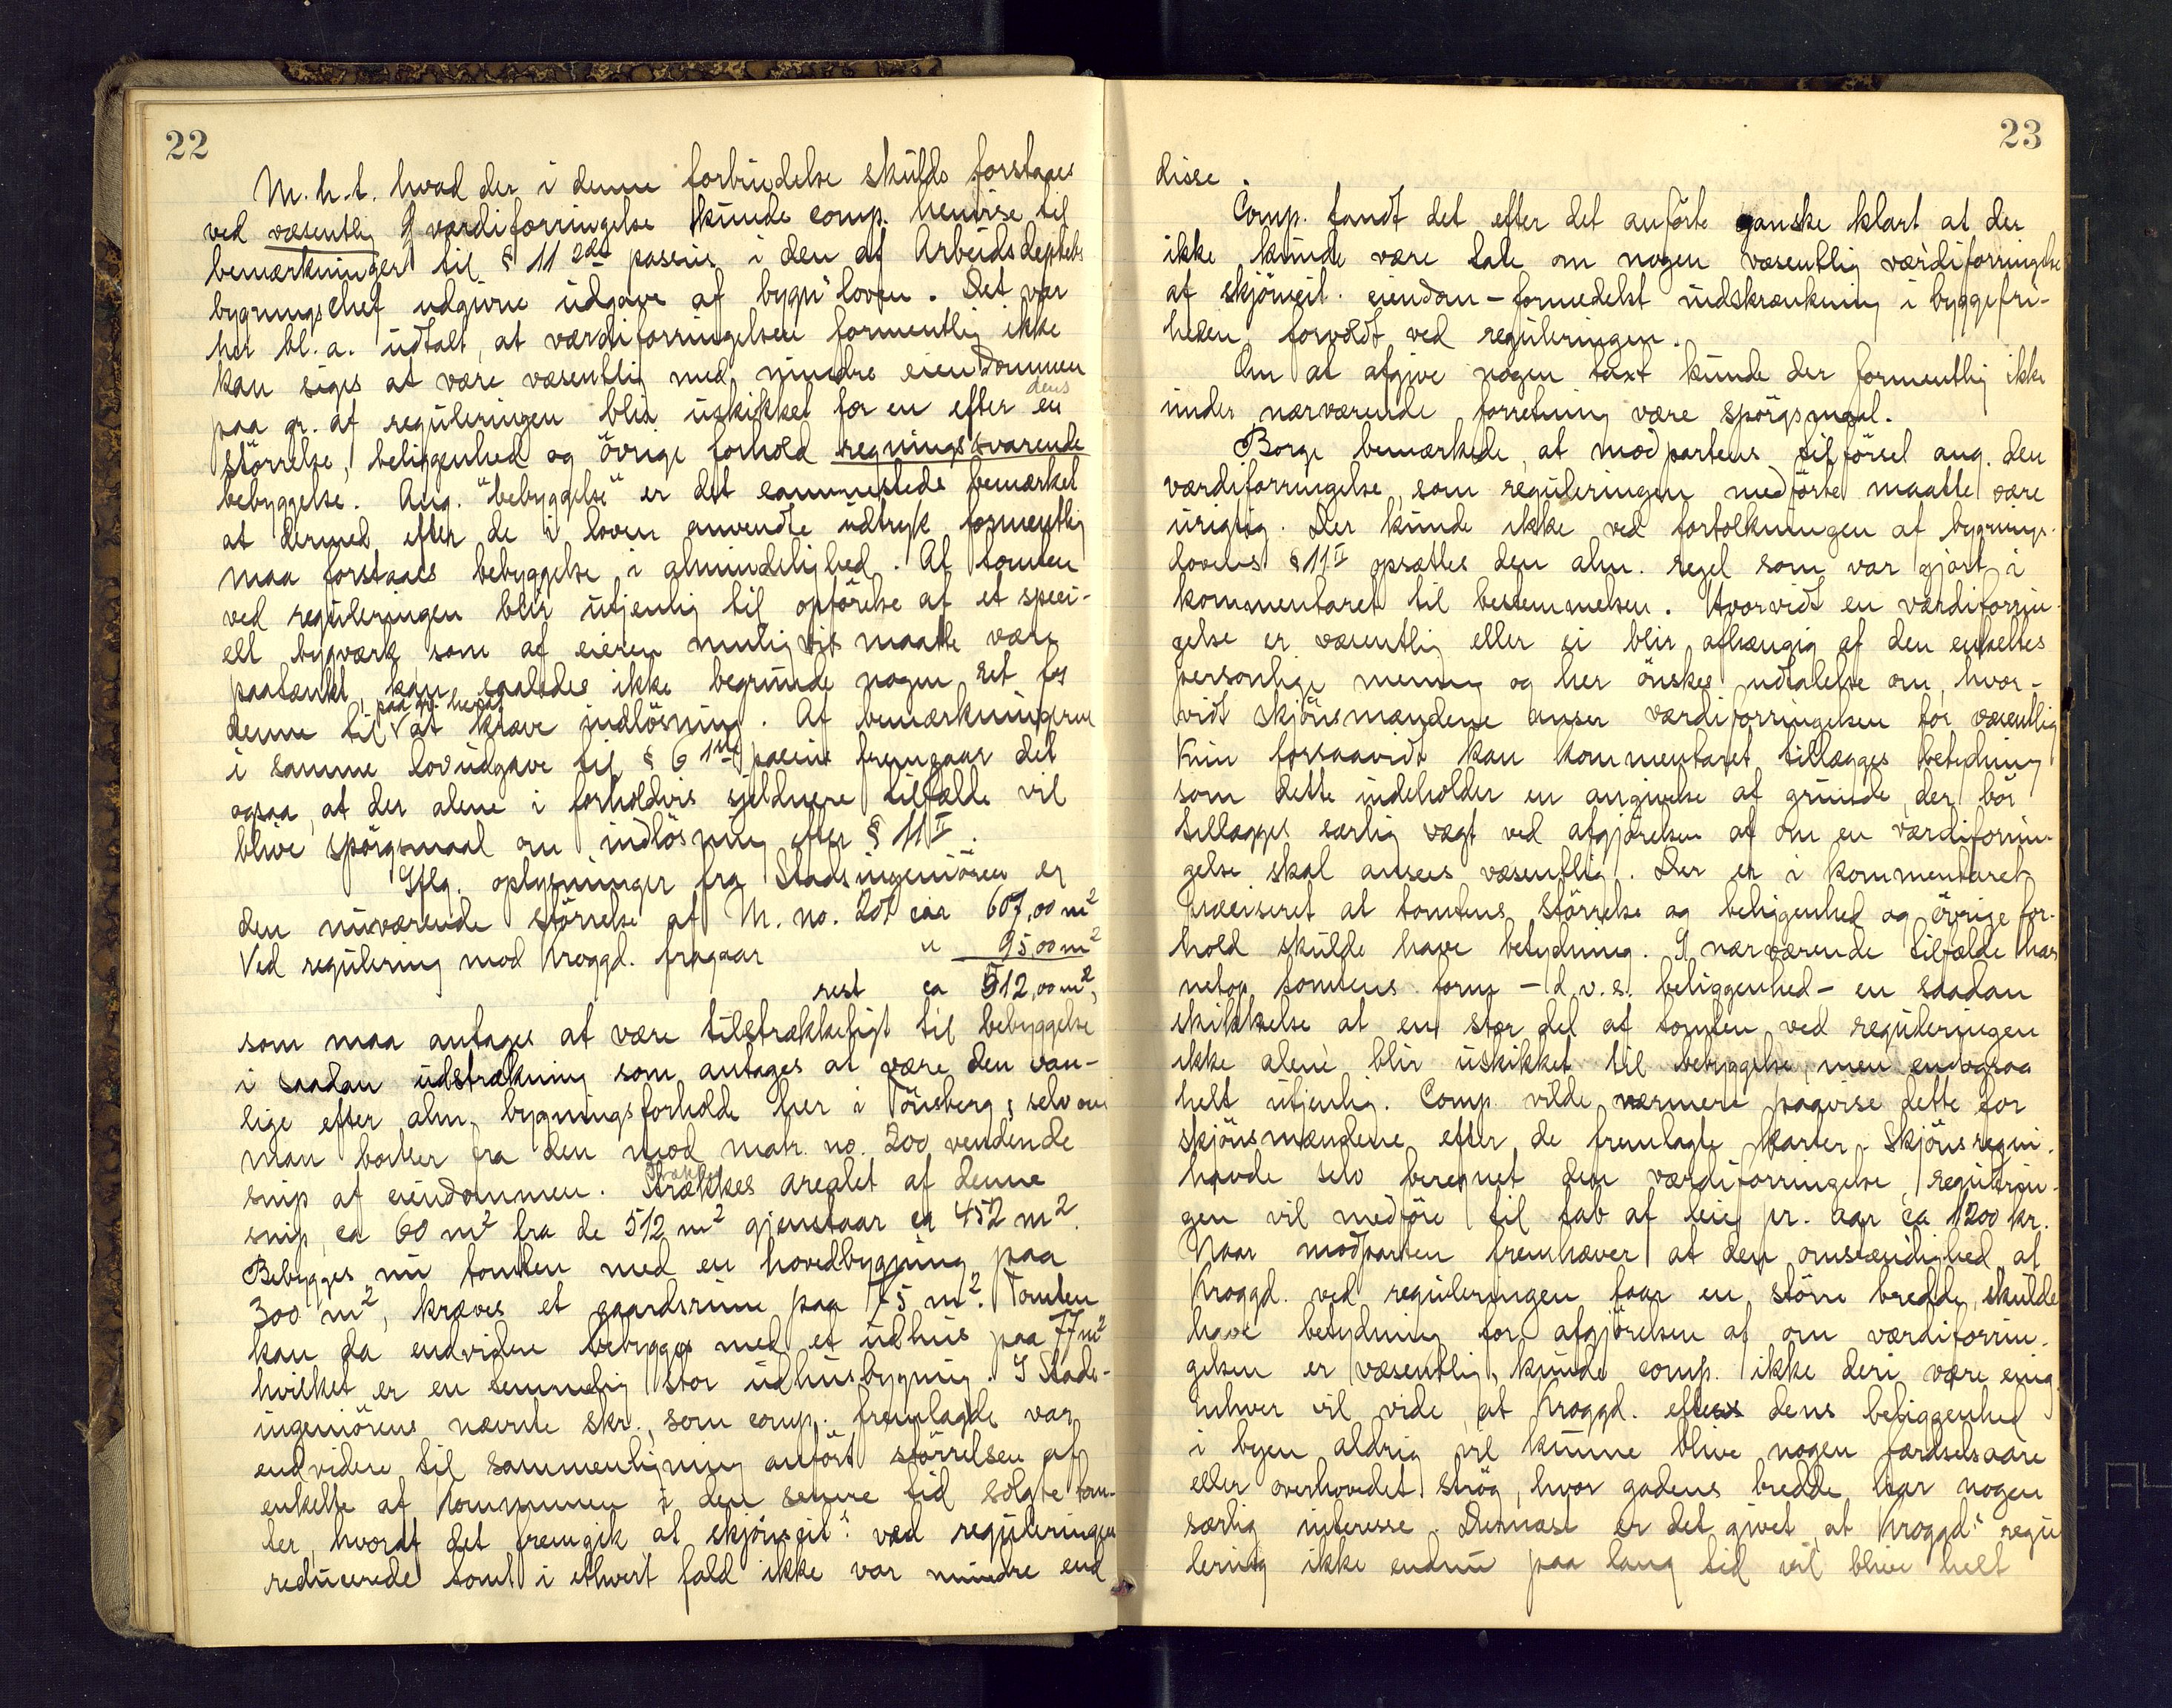 22
M.h.t. hvad der i denne forbindelse skulde forstaaes
ved væsentlig værdiforringelse kunde comp. henvise til
bemærkninger til § 11 2det passus i den af Arbeidsdeptets
bygningschef udgivne udgave af bygn.loven. Det var
her bl.a. udtalt, at værdiforringelsen formentlig ikke
kan siges at være væsentlig med mindre eiendommen
paa gr. af reguleringen blir uskikket for en efter dens
størrelse, beliggenhed og øvrige forhold regningssvarende
bebyggelse. Ang. "bebyggelse" er det sammesteds bemærket
at dermed efter de i loven anvendte udtryk formentlig
maa forstaaes bebyggelse i almindelighed. At tomten
ved reguleringen blir utjenlig til opførelse af et speci-
elt bygværk, som af eieren muligvis maatte være
paatænkt, kan saaledes ikke begrunde nogen ret for
denne til paa gr. heraf at kræve indløsning. Af bemærkningerne
i samme lovudgave til § 6 1ste passus fremgaar det
ogsaa, at der alene i forholdvis sjeldnere tilfælde vil
blive spørgsmaal om indløsning efter § 11 II.
Iflg. oplysninger fra Stadsingeniøren er
den nuværende størrelse af M. no. 201 ca 607,00 m²
Ved regulering mod Kroggd. fragaar " 95,00 m²
rest ca 512,00 m²,
som maa antages at være tilstrækkeligt til bebyggelse
i saadan udstrækning som antages at være den van-
lige efter alm. bygningsforholde her i Tønsberg, selv om
man bortser fra den mod matr. no. 200 vendende
snip af eiendommen. Trækkes arealet af denne
snip, ca 60 m² fra de 512 m² gjenstaar ca 452 m².
Bebygges nu tomten med en hovedbygning paa
300 m², kræves et gaardsrum paa 75 m². Tomten
kan da endvidere bebygges med et udhus paa 77 m²
hvilket er en temmelig stor udhusbygning. I Stads-
ingeniørens nævnte skr., som comp. fremlagde var
endvidere til sammenligning anført størrelsen af
enkelte af Kommunen i den senere tid solgte tom-
ter, hvoraf det fremgik at skjønseit.s ved reguleringen
reducerede tomt i ethvert fald ikke var mindre end
23
disse.
Comp. fandt det efter det anførte ganske klart at der
ikke kunde være tale om nogen væsentlig værdiforringelse
af skjønseit. eiendom – formedelst indskrænkning i byggefri-
heden forvoldt ved reguleringen.
Om at afgive nogen taxt kunde der formentlig ikke
under nærværende forretning være spørgsmaal.
Borge bemærkede, at modpartens tilførsel ang. den
værdiforringelse, som reguleringen medførte maatte være
urigtig. Der kunde ikke ved fortolkningen af bygnings-
lovens § 11 II opsættes den alm. regel som var gjort i
kommentaret til bestemmelsen. Hvorvidt en værdiforrin-
gelse er væsentlig eller ei blir afhængig af den enkeltes
personlige mening og her ønskes udtalelse om, hvor-
vidt skjønsmændene anser værdiforringelsen for væsentlig
Kun forsaavidt kan kommentaret tillægges betydning
som dette indeholder en angivelse af grunde, der bør
tillægges særlig vægt ved afgjørelsen af om en værdiforrin-
gelse skal ansees væsentlig. Der er i kommentaret
præciseret at tomtens størrelse og beliggenhed og øvrige for-
hold skulde have betydning. I nærværende tilfælde har
netop tomtens form – d.v.s. beliggenhed – en saadan
skikkelse at en stor del af tomten ved reguleringen
ikke alene blir uskikket til bebyggelse, men endogsaa
helt utjenlig. Comp. vilde nærmere paavise dette for
skjønsmændene efter de fremlagte karter. Skjønsreqvi.
havde selv beregnet den værdiforringelse, regulerin-
gen vil medføre til tab af leie pr. aar ca 1200 kr.
Naar modparten fremhæver at den omstændighed at
Kroggd. ved reguleringen faar en større bredde, skulde
have betydning for afgjørelsen af om værdiforrin-
gelsen er væsentlig, kunde comp. ikke deri være enig
Enhver vil vide, at Kroggd. efter dens beliggenhed
i byen aldrig vil kunne blive nogen færdselsaare
eller overhovedet strøg, hvor gadens bredde har nogen
særlig interesse. Dernæst er det givet, at Kroggd.s regu
lering ikke endnu paa lang tid vil blive helt